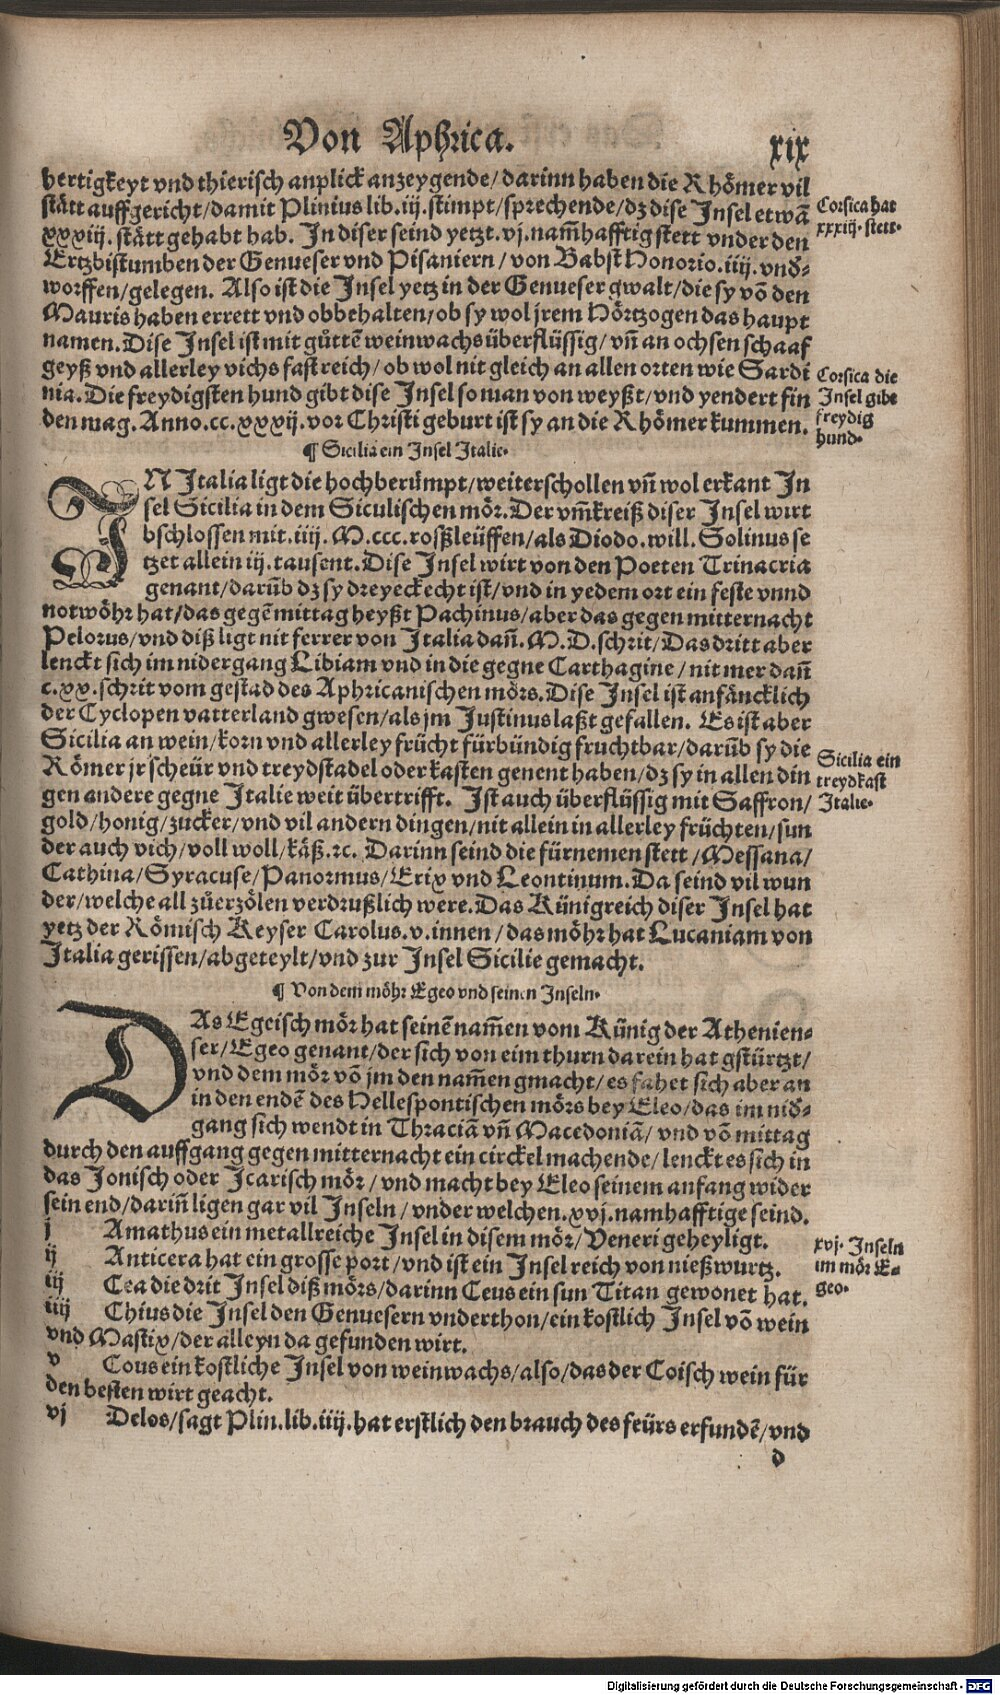 Von Aphrica.
xix
hertigkeyt vnd thierisch anplick anzeygende/ darinn haben die Rhömer vil
stätt auffgericht/ damit Plinius lib. iij. stimpt/ sprechende/ dz dise Insel etwā
xxxiij. stätt gehabt hab. In diser seind yetzt. vj. nam̄hafftig stett vnder den
Ertzbistumben der Genueser vnd Pisaniern/ von Babst Honorio. iiij. vnd-
worffen/ gelegen. Also ist die Insel yetz in der Genueser gwalt/ die sy vō den
Mauris haben errett vnd obbehalten/ ob sy wol jrem Hörtzogen das haupt
namen. Dise Insel ist mit gůttē weinwachs überflüssig/ vn̄ an ochsen schaaf
geyß vnd allerley vichs fast reich/ ob wol nit gleich an allen orten wie Sardi
nia. Die freydigsten hund gibt dise Insel so man von weyßt/ vnd yendert fin
den mag. Anno. cc. xxxij. vor Christi geburt ist sy an die Rhömer kummen.
Corsica hat
xxxiij. stett.
Corsica die
Insel gibt
freydig
hund.
¶ Sicilia ein Insel Italie.
IN Italia ligt die hochberümpt/ weiterschollen vn̄ wol erkant In
sel Sicilia in dem Siculischen mör. Der vm̄kreiß diser Insel wirt
bschlossen mit. iiij. M. ccc. roßleüffen/ als Diodo. will. Solinus se
tzet allein iij. tausent. Dise Insel wirt von den Poeten Trinacria
genant/ darūb dz sy dreyeckecht ist/ vnd in yedem ort ein feste vnnd
notwöhr hat/ das gegē mittag heyßt Pachinus/ aber das gegen mitternacht
Pelorus/ vnd diß ligt nit ferrer von Italia dan̄. M. D. schrit/ Das dritt aber
lenckt sich im nidergang Libiam vnd in die gegne Carthagine/ nit mer dan̄
c. xx. schrit vom gestad des Aphricanischen mörs. Dise Insel ist anfäncklich
der Cyclopen vatterland gwesen/ als jm Justinus laßt gefallen. Es ist aber
Sicilia an wein/ korn vnd allerley frücht fürbündig fruchtbar/ darūb sy die
Römer jr scheür vnd treydstadel oder kasten genent haben/ dz sy in allen din
gen andere gegne Italie weit übertrifft. Ist auch überflüssig mit Saffron/
gold/ honig/ zucker/ vnd vil andern dingen/ nit allein in allerley früchten/ sun
der auch vich/ voll woll/ käß. ꝛc. Darinn seind die fürnemen stett/ Messana/
Cathina/ Syracuse/ Panormus/ Erix vnd Leontinum. Da seind vil wun
der/ welche all zůerzölen verdrußlich were. Das Künigreich diser Insel hat
yetz der Römisch Keyser Carolus. v. innen/ das möhr hat Lucaniam von
Italia gerissen/ abgeteylt/ vnd zur Insel Sicilie gemacht.
Sicilia ein
treydkast
Italie.
¶ Von dem möhr Egeo vnd seinen Inseln.
DAs Egeisch mör hat seinē nam̄en vom Künig der Athenien-
ser/ Egeo genant/ der sich von eim thurn darein hat gstürtzt/
vnd dem mör vō jm den nam̄en gmacht/ es fahet sich aber an
in den endē des Hellespontischen mörs bey Eleo/ das im nid-
gang sich wendt in Thraciā vn̄ Macedoniā/ vnd vō mittag
durch den auffgang gegen mitternacht ein circkel machende/ lenckt es sich in
das Jonisch oder Icarisch mör/ vnd macht bey Eleo seinem anfang wider
sein end/ darin̄ ligen gar vil Inseln/ vnder welchen. xvj. namhafftige seind.
j Amathus ein metallreiche Insel in disem mör/ Veneri geheyligt.
ij Anticera hat ein grosse port/ vnd ist ein Insel reich von nießwurtz.
iij Cea die drit Insel diß mörs/ darinn Ceus ein sun Titan gewonet hat.
iiij Chius die Insel den Genuesern vnderthon/ ein kostlich Insel vō wein
vnd Mastix/ der alleyn da gefunden wirt.
v Cous ein kostliche Insel von weinwachs/ also/ das der Coisch wein für
den besten wirt geacht.
vj Delos/ sagt Plin. lib. iiij. hat erstlich den brauch des feürs erfundē/ vnd
xvj. Inseln
im mör E-
geo.
d
Digitalisierung gefördert durch die Deutsche Forschungsgemeinschaft - DFG